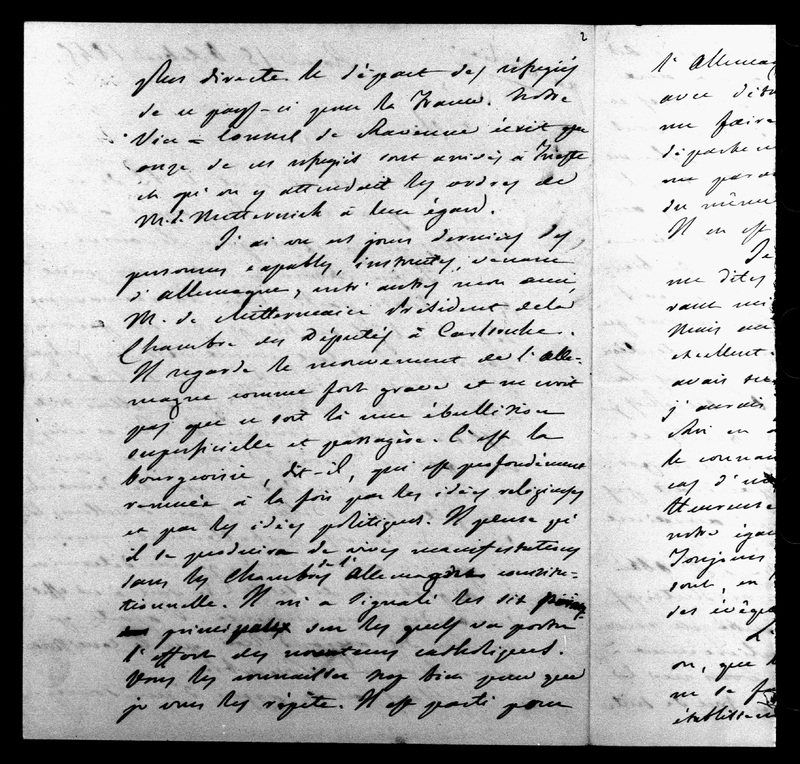 2
plus directe le départ des réfugiés
de ce pays-ci pour la France. Notre
Vice-Consul de Ravenne écrit que
onze de ces réfugiés sont arrivés à Trieste
et qu'on y attendait les ordres de
M. de Metternich à leur égard.
J'ai vu ces jours derniers des
personnes capables, instruites, venant
d'allemagne, entr'autres mon ami,
M. de Mittermaier Président de la
Chambre des Députés à Carlsruhe.
Il regarde le mouvement de l'alle-
magne comme fort grave et ne croit
pas que ce soit là une ébullition
superficielle et passagère. C'est la
bourgeoisie, dit-il, qui est profondément
remuée à la fois par les idées religieuses
et par les idées politiques. Il pense qu'
il se produira de vives manifestations
dans les Chambres de l'Allemagne constitu-
tionnelle. Il m'a signalé les dix points
principaux sur lesquels va porter
l'effort des novateurs catholiques.
Vous les connaissez trop bien pour que
je vous les répète. Il est parti pour
l'Allemag
avec
me faire
dépêche
me
du même
Il en est
Je
me dites
vant
Mais au
excellent.
avais
j'aurais
Roi en
le
cas d'un
Heureuse
notre égar
Toujours
sont, en
des évêqu
L'
on, que
ne se
établissem